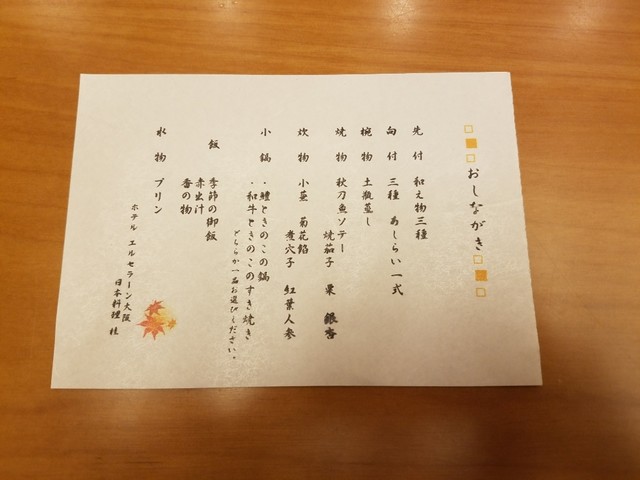 おしながき
先付 和え物三種
向付 三種 あしらい一式
椀物 土瓶蒸し
焼物 秋刀魚ソテー
焼茄子 栗 銀杏
炊物 小蕪 菊花餡
煮穴子 紅葉人参
小鍋 ・鱧ときのこの鍋
・和牛ときのこのすき焼き
どちらか一品お選びください。
飯 季節の御飯
赤出汁
香の物
水物 プリン
ホテル エルセラーン大阪
日本料理 桂